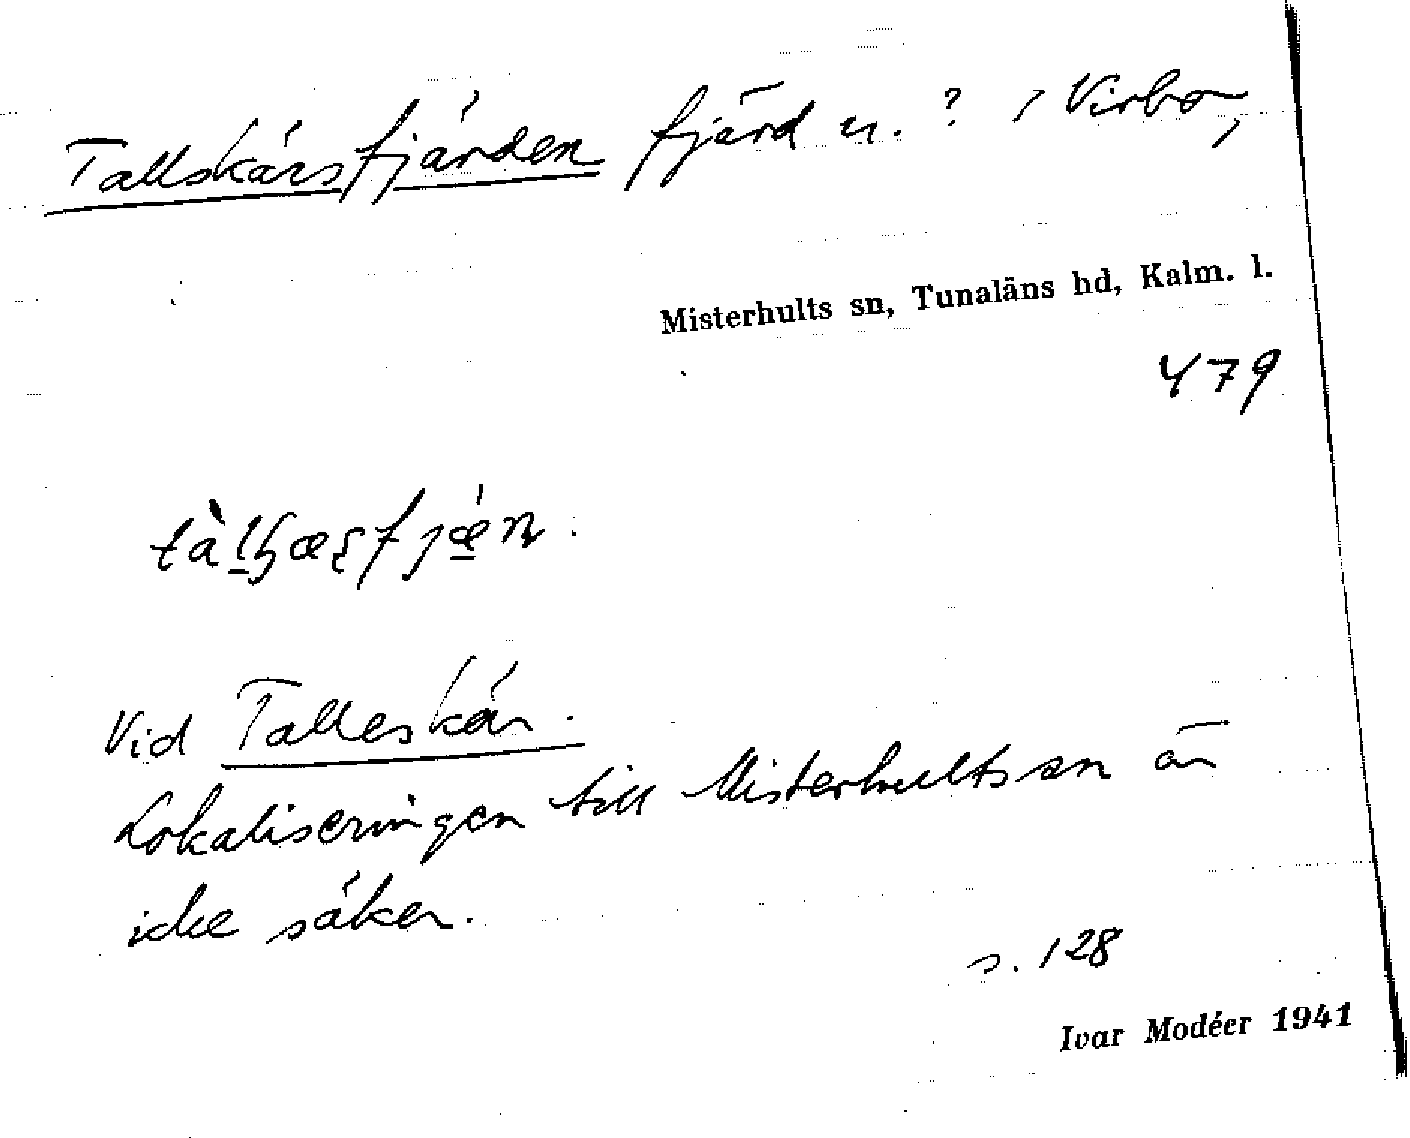 Tallskärsfjärden fjärd u. ? , Virbo,
Misterhults sn, Tunaläns hd, Kalm. l.
479
Vid Talleskär.
Lokaliseringen till Misterhults sn är
icke säker.
s. 128
Ivar Modéer 1941